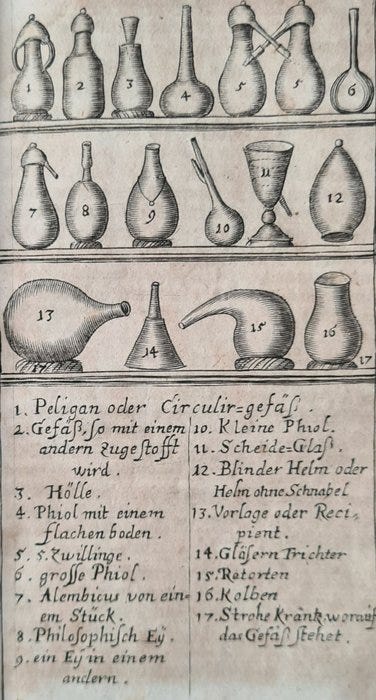 1 2 3 4 5 5 6
7 8 9 10 11 12
13 14 15 16 17
17
1. Peligan oder Circulir=gefäß.
2. Gefäß, so mit einem
andern zugestofft
wird.
3. Hölle.
4. Phiol mit einem
flachen boden.
5. 5. Zwillinge.
6. grosse Phiol.
7. Alembicus von ein=
em Stück.
8. Philosophisch Eÿ.
9. ein Eÿ in einem
andern.
10. Kleine Phiol.
11. Scheide=Glaß.
12. Blinder Helm oder
Helm ohne Schnabel
13. Vorlage oder Reci=
pient.
14. Gläsern Trichter
15. Retorten
16. Kolben
17. Strohe Kräntz, worauf
das Gefäß stehet.